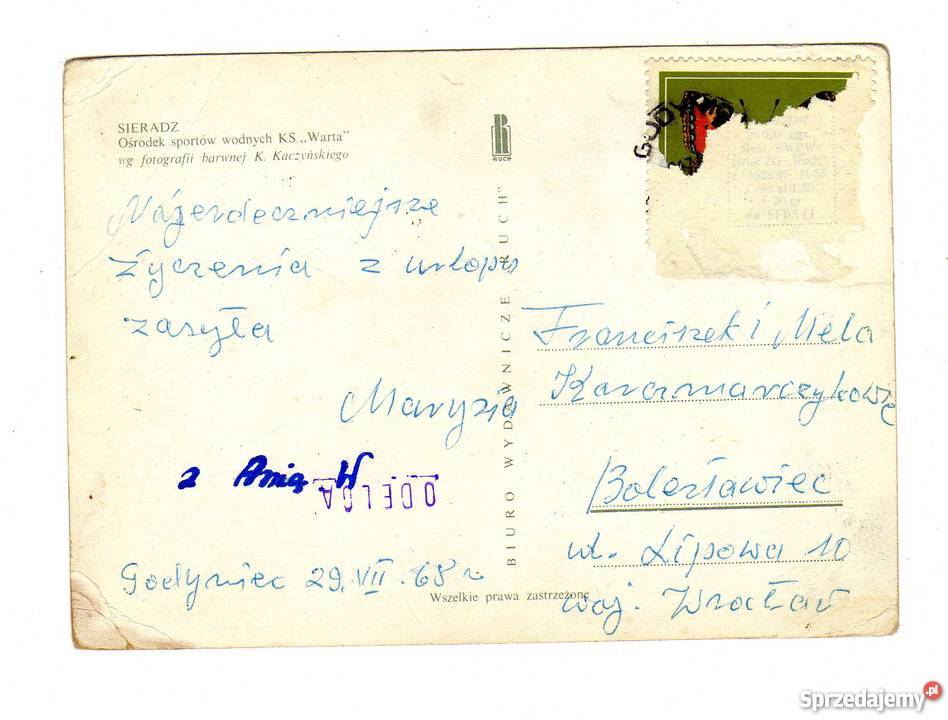 SIERADZ
Ośrodek sportów wodnych KS „Warta"
wg fotografii barwnej K. Kaczyńskiego
RUCH
Najserdeczniejsze
życzenia z urlopu
zasyła
Marysia
z Anią. W
ODELGA
Godyniec 29.VII.68 r
BIURO WYDAWNICZE „RUCH"
Wszelkie prawa zastrzeżone
GODY
20 gr
Franciszek i Mela
Karczmarczykowie
Bolesławiec
ul. Lipowa 10
woj. Wrocław
Sprzedajemy.pl